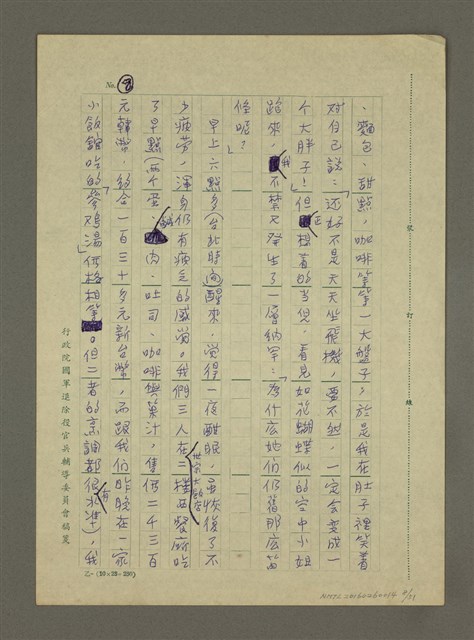 No. 9
、麵包、甜點，咖啡等等一大盤子，於是我在肚子裡笑着
對自己說：「還好不是天天坐飛機，要不然，一定會變成一
个大胖子！」但正想着的当儿，看見如花蝴蝶似的空中小姐
蹈來，我不禁又發生了一層納罕：「為什広她们仍舊那広苗
條呢？」
早上六點多(台北時間)醒來，覺得一夜酣眠，虽恢復了不
少疲劳，渾身仍有疲乏的感覺。我們三人在二樓西餐廳吃
了早點(兩个蛋、鹹肉、吐司、咖啡與菓汁，售價二千三百
元韓幣，約合一百三十多元新台幣，而跟我们昨晚在一家
小飯館吃的「參鷄湯」價格相等。但二者的烹調都很有水準)，我
行政院國軍退除役官兵輔導委員會稿箋
乙-(10×25=250)
裝 訂 線